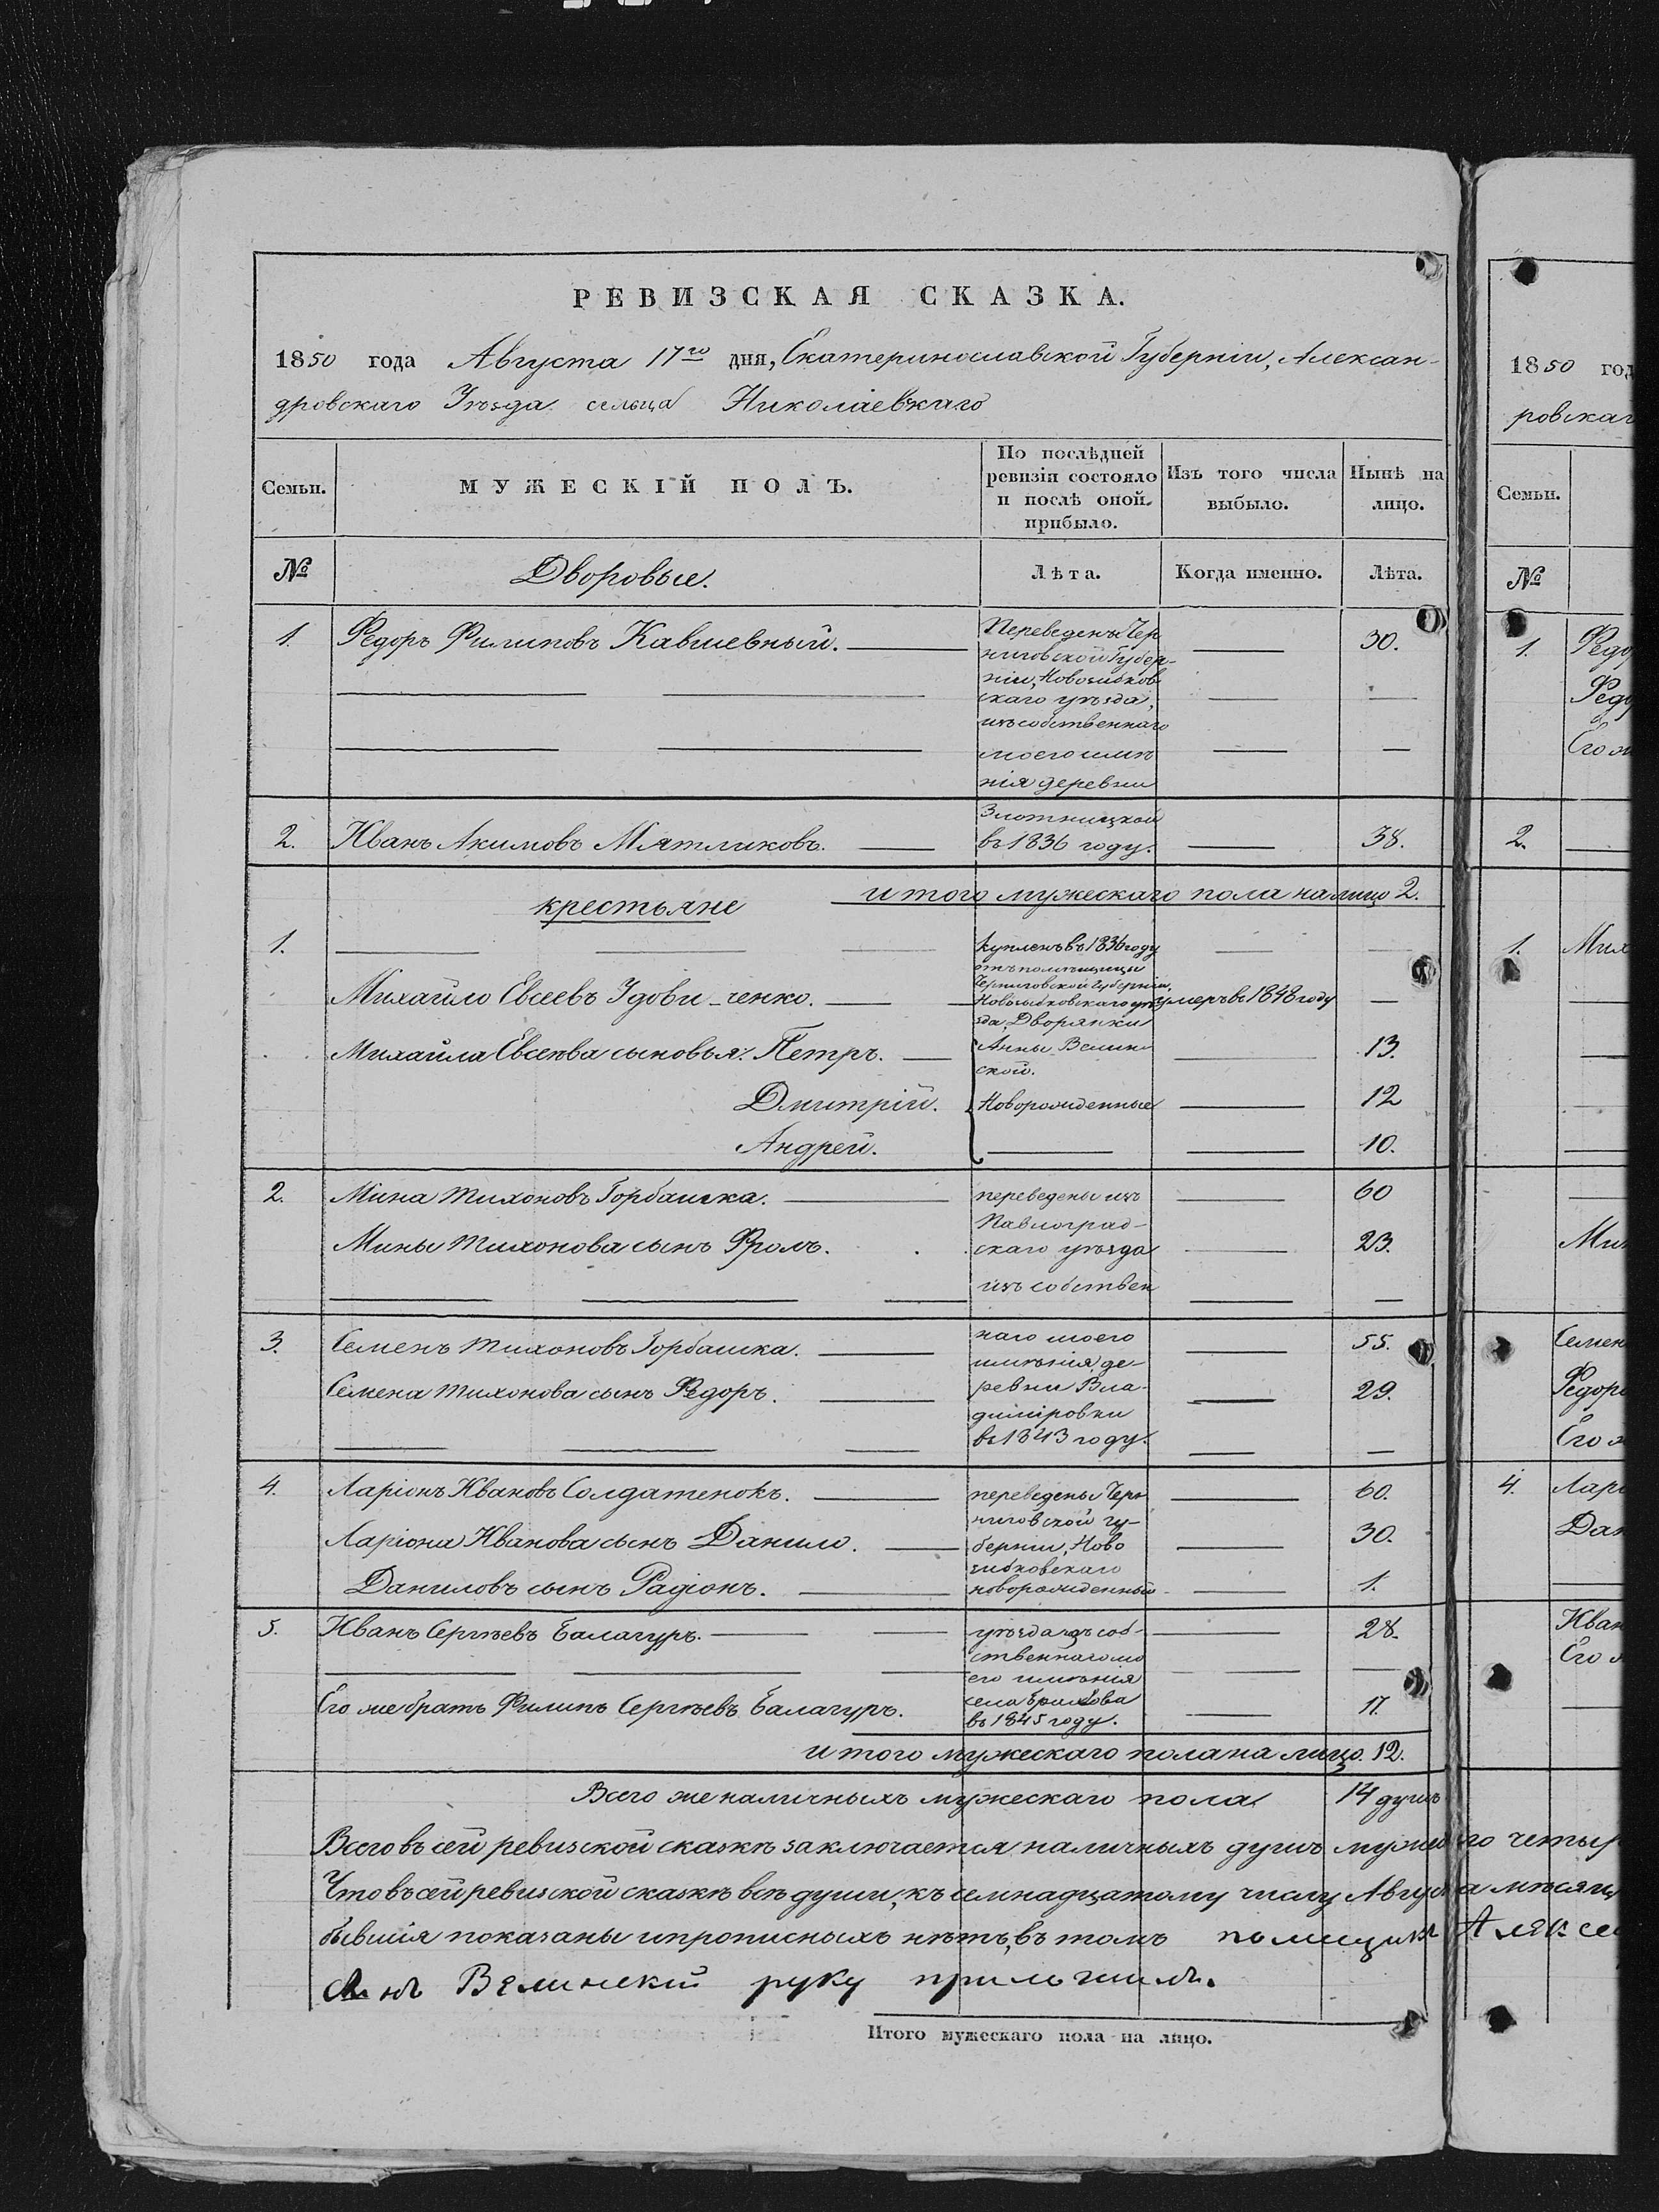 РЕВИЗСКАЯ СКАЗКА.
1850 года Августа 17го дня, Екатеринославской Губерніи, Алексан-
дровскаго Уѣзда сельца Николаевскаго
Семьи. МУЖЕСКІЙ ПОЛЪ. По послѣдней ревизіи состояло и послѣ оной прибыло. Изъ того числа выбыло. Нынѣ на лицо.
№ Дворовые. Лѣта. Когда именно. Лѣта.
1. Федоръ Филиповъ 30.
Переведены Чер
ниговской Губер-
ніи, Новозыбков
скаго уѣзда,
изъ собственнаго
моего имѣ
нія деревни
Злотницкой
2. Иванъ Акимовъ Мятликовъ. въ 1836 году. 38.
итого мужескаго пола на лицо 2.
крестьяне
1. Купленъ въ 1836 году
отъ помѣщицы
Черниговской Губерніи,
Михайло Евсеевъ Удови-ченко. Новозыбковскаго уѣ умеръ въ 1848 году
зда, Дворянки
Михайла Евсеева сыновья: Петръ. Анны Велин 13.
ской.
Дмитрій. Новорожденные 12
Андрей. 10.
2. Мина Тихоновъ Горбашка. переведены изъ 60
Павлоград-
Мины Тихонова сынъ Фролъ. скаго уѣзда 23.
изъ собствен
3. Семенъ Тихоновъ Горбашка. наго моего 55.
имѣнія де-
Семена Тихонова сынъ Федоръ. ревни Вла- 29.
диміровки
въ 1843 году.
4. Ларіонъ Ивановъ Солдатенокъ. переведены Чер 60.
ниговской гу-
Ларіона Иванова сынъ Данило. берніи, Ново 30.
зибковскаго
Даниловъ сынъ Радіонъ. новорожденный 1.
5. Иванъ Сергѣевъ Балагуръ. уѣзда изъ соб- 28.
ственнаго мо
его имѣнія
села
Его же братъ Филипъ Сергѣевъ Балагуръ. въ 1845 году. 17.
итого мужескаго пола на лицо. 12.
Всего же наличныхъ мужескаго пола 14 душъ
Всего въ сей ревизской сказкѣ заключается наличныхъ душъ го четыр
Что въ сей ревизской сказкѣ всѣ души, къ семнадцатому числу Августа мѣсяца
бывшія показаны и прописныхъ нѣтъ, въ томъ помещикъ Алексе
Велинский руку приложилъ.
Итого мужескаго пола на лицо.
1850 год
ровскаг
Семьи.
№
1. Федо
Федо
Его ж
2.
1. Мих
Мин
Семен
Федор
Его ж
4. Лари
Дан
Иван
Его ж